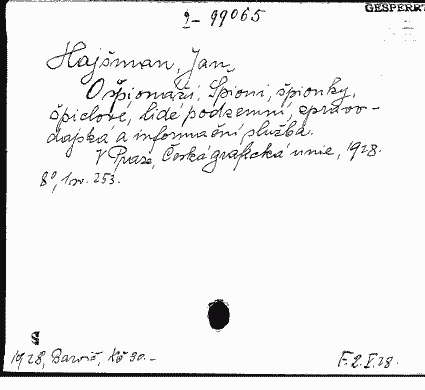 GESPERRT
2-99065
Hajšman, Jan
O špionáži. Špioni, špionky,
špiclové, lidé podzemní, zpravo-
dajská a informační služba.
V Praze, Česká grafická unie, 1928.
8°, 1 sv. 253.
1928, Barvič, Kč 30.-
F.2.V.28.